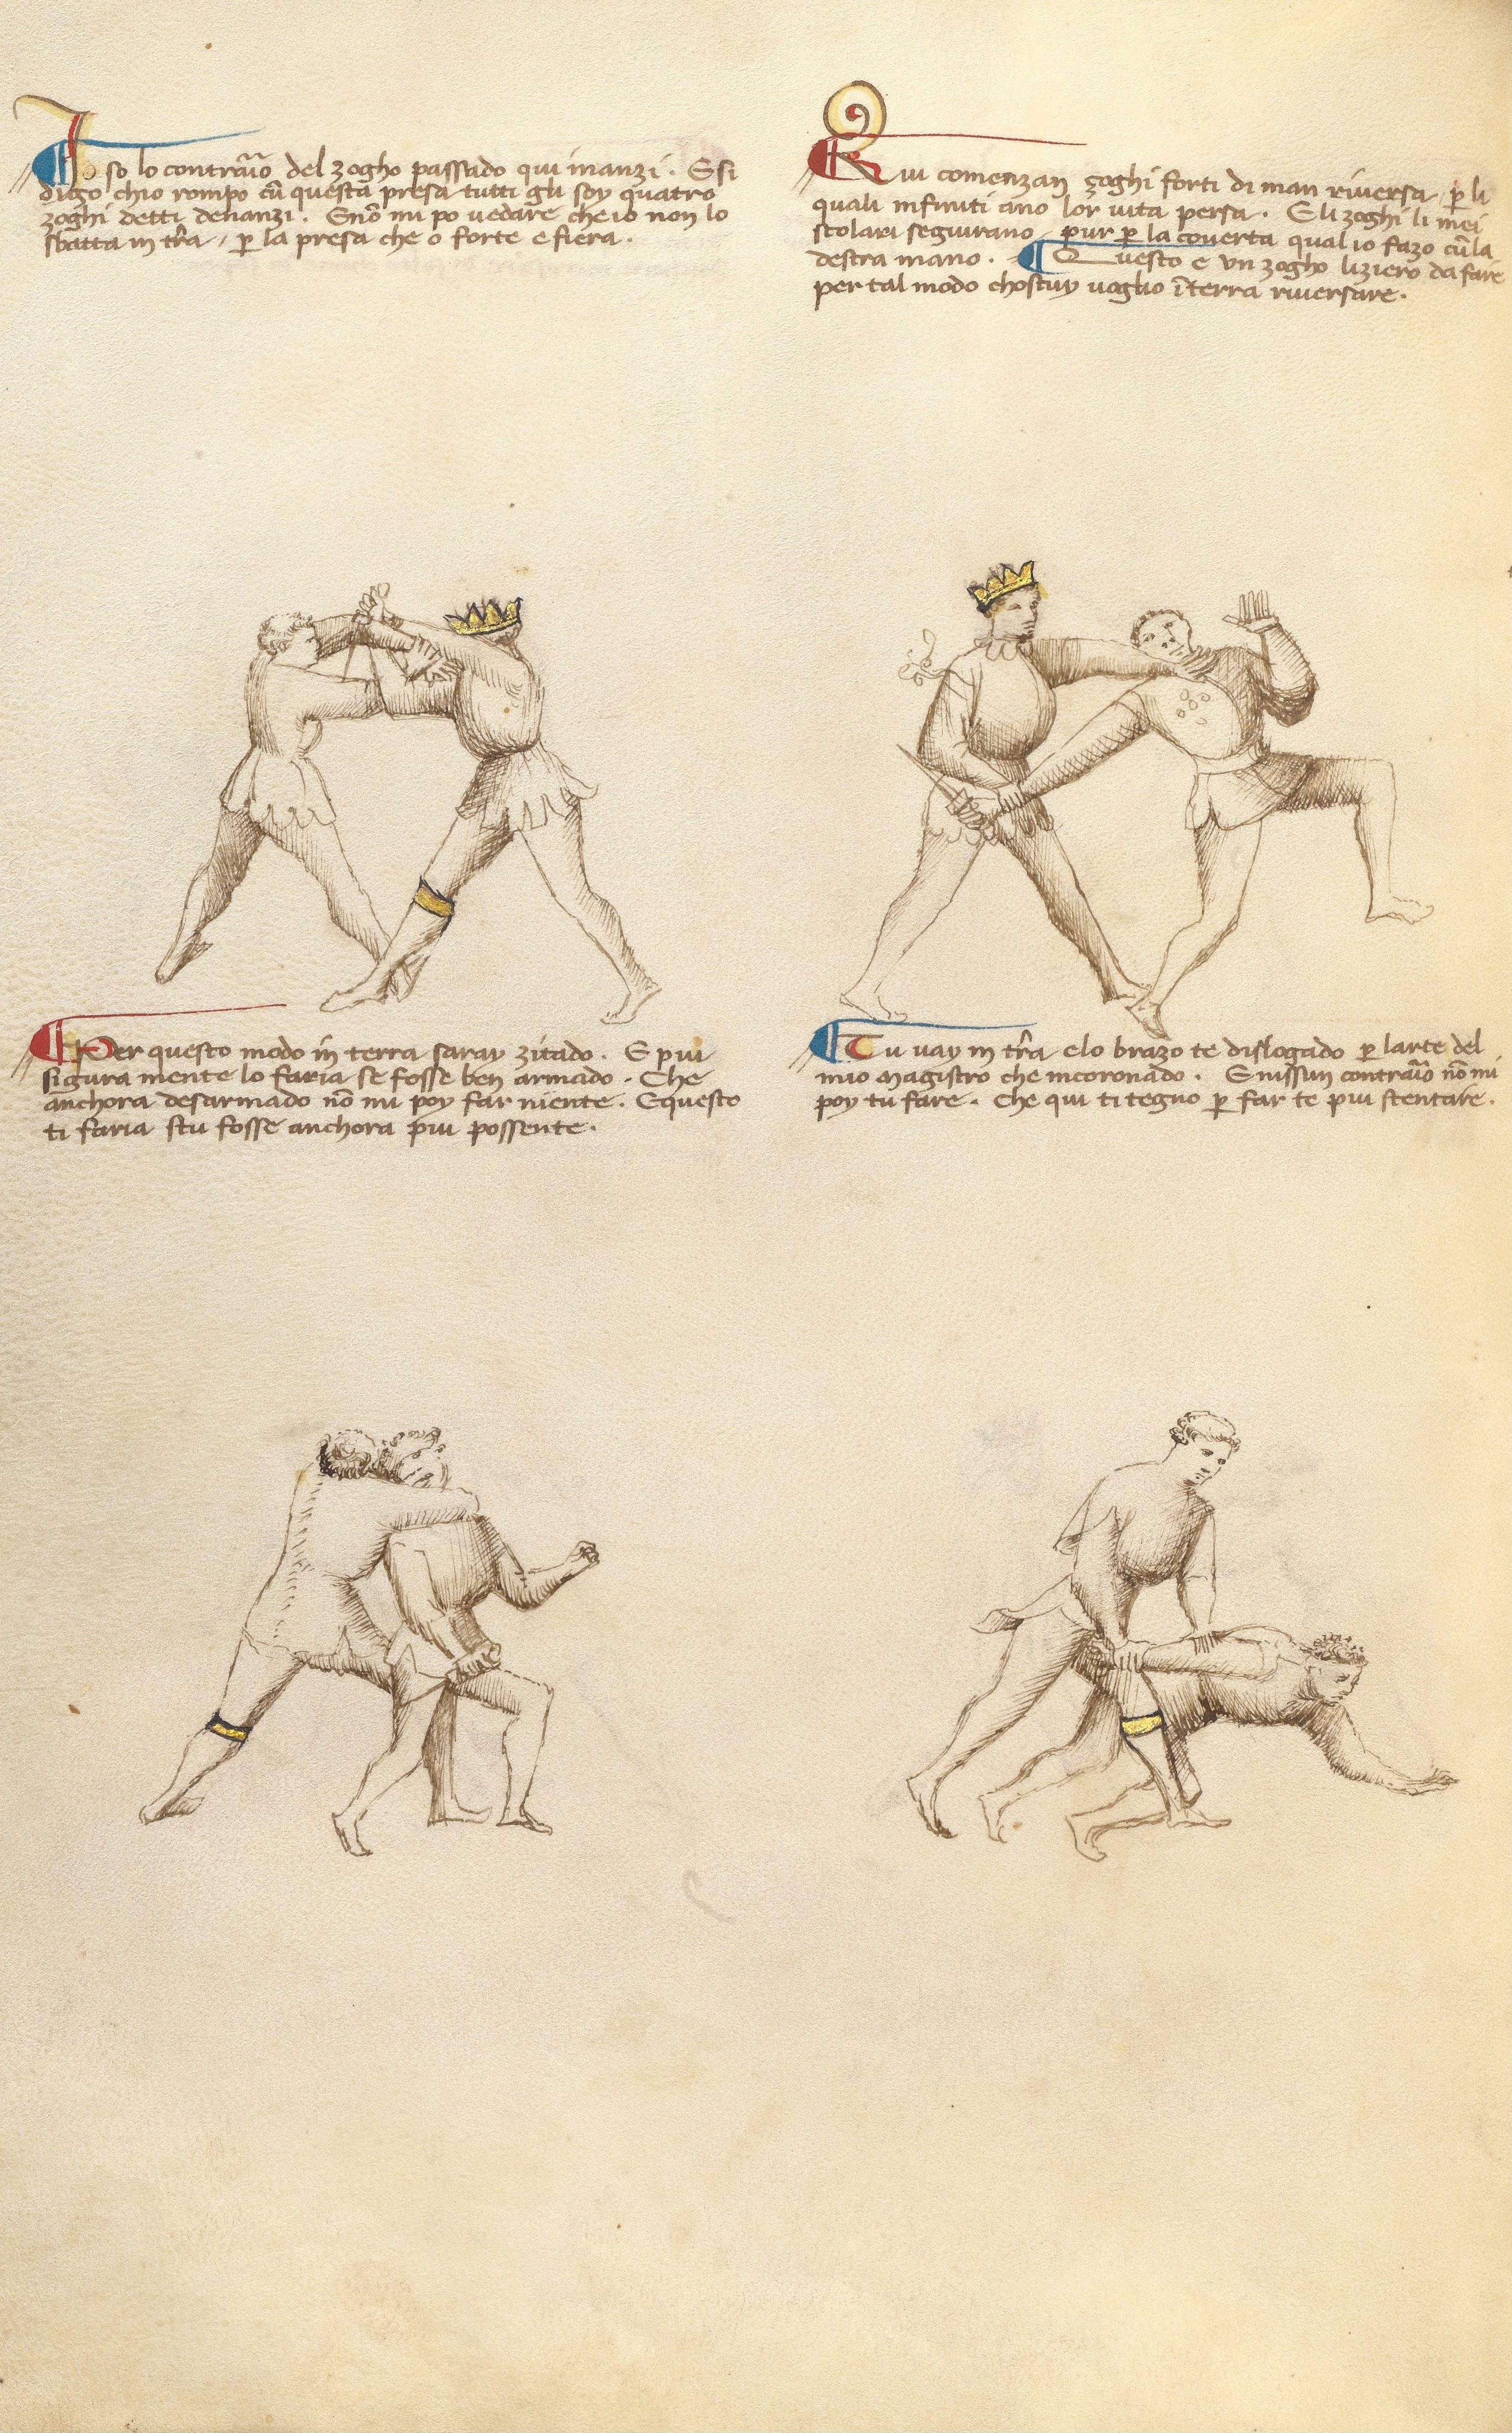 Io so lo contrario del zogho passado qui inanzi. E si
digo ch'io rompo cū questa presa tutti gli soy quatro
zoghi detti denanzi. E nō mi po vedare che io non lo
sbatta in tr̄a, p̱ la presa che o forte e fiera.
Qui comenzan zoghi forti di man riversa, p̱ li
quali infiniti ano lor vita persa. E li zoghi li mei
scolari seguirano, pur p̱ la coverta qual io fazo cū la
destra mano. Questo e un zogho liziero da fare
per tal modo chostuy voglio ī terra riversare.
Per questo modo in terra saray zitado. E piu
sigura mente lo faria se fosse ben armado. Che
anchora desarmado nō mi poy far niente. E questo
ti faria stu fosse anchora piu possente.
Tu vay in tr̄a e lo brazo te dislogado p̱ larte del
mio Magistro che incoronado. E nissun contrario nō mi
poy tu fare. Che qui ti tegno p̱ far te piu stentare.